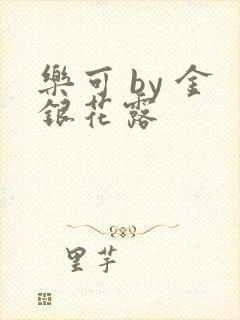 樂可 by 金
銀花露
里芋